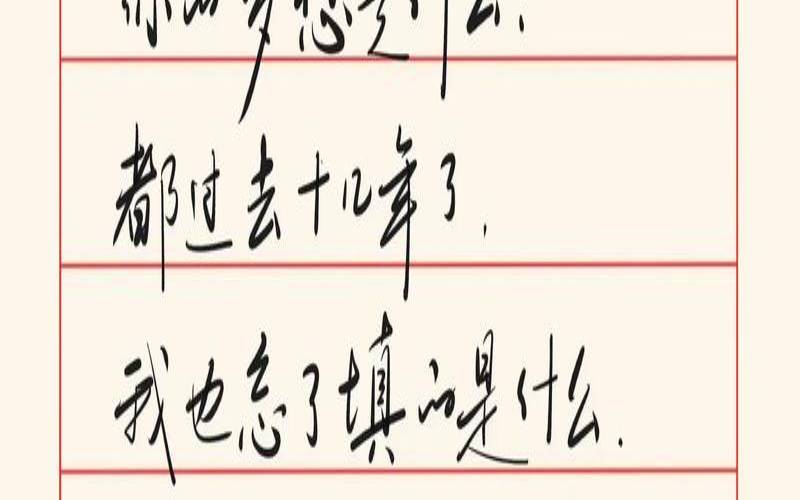 你的梦想是什么.
都过去十几年了.
我也忘了填的是什么.